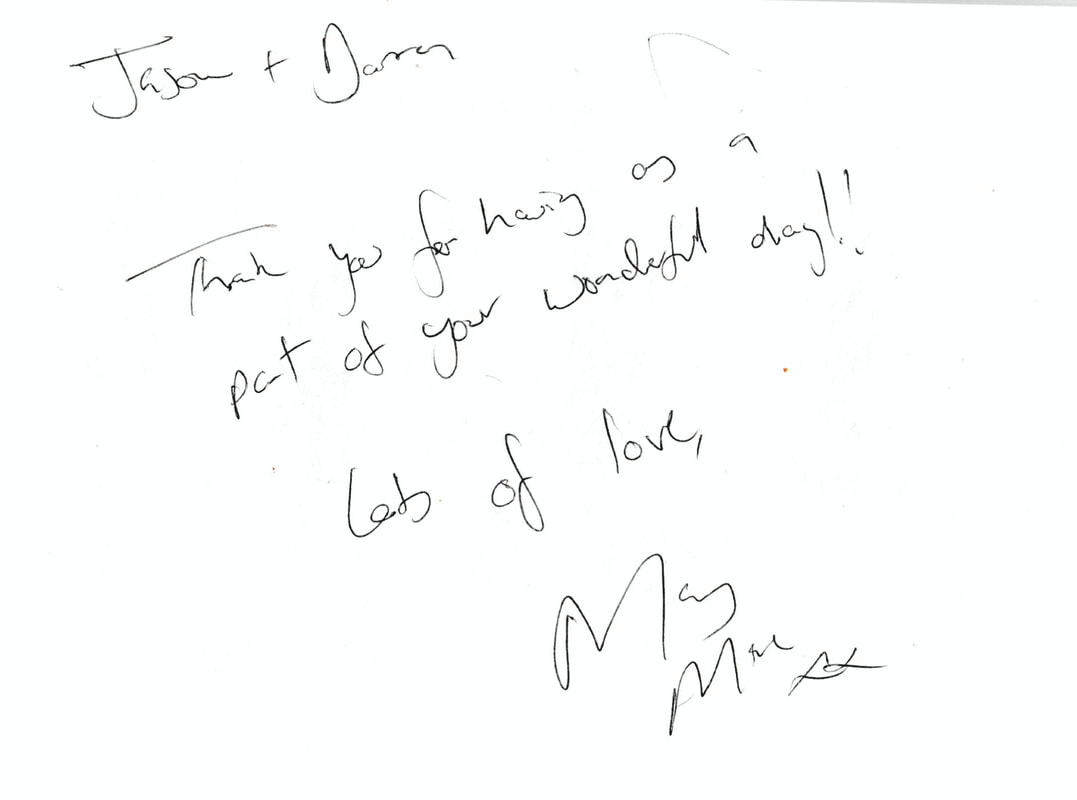 Jason + Darren
Thank you for having us a
part of your wonderful day!!
Lots of love,